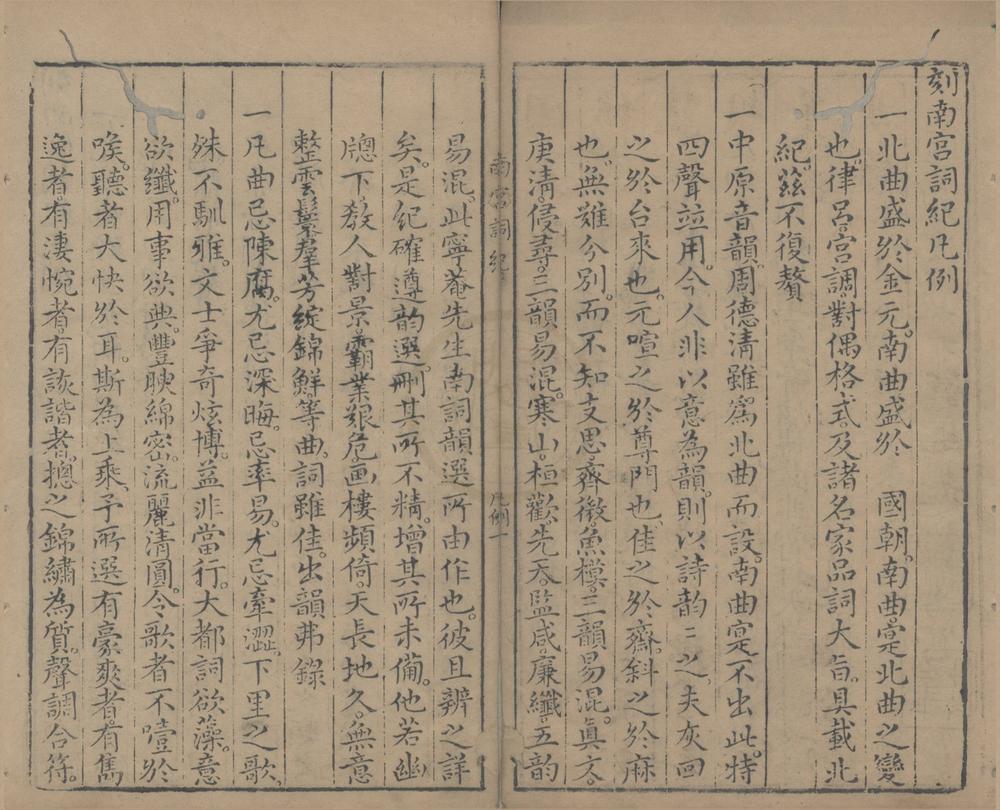 刻南宮詞紀凡例
一北曲盛於金元。南曲盛於 國朝。南曲寔北曲之變
也。律呂宮調。對偶格式。及諸名家品詞大旨。具載北
紀。玆不復贅
一中原音韻。周德淸雖爲北曲而設。南曲寔不出此。特
四聲竝用。今人非以意為韻。則以詩韵〻之。夫灰回
之於台來也。元喧之於尊門也。佳之於齋。斜之於麻
也。無難分別。而不知支思。齊微。魚模。三韻易混。眞文。
庚淸。侵尋。三韻易混。寒山。桓歡。先天。監咸。廉纖。五韵
南宮詞紀
凡例一
易混。此寧菴先生南詞韻選所由作也。彼且辨之詳
矣。是紀確遵韵選。刪其所不精。增其所未備。他若幽
牕下。教人對景。霸業艱危。画樓頻倚。天長地久。無意
整雲鬟。羣芳綻錦鮮。等曲。詞雖佳。出韻弗錄
一凡曲忌陳腐。尤忌深晦。忌率易。尤忌牽澀。下里之歌。
殊不馴雅。文士爭奇炫博。益非當行。大都詞欲藻。意
欲纖。用事欲典。豐腴綿密。流麗淸圓。令歌者不噎於
喉。聽者大快於耳。斯為上乘。予所選有豪爽者。有雋
逸者。有淒惋者。有詼諧者。摠之錦繡為質。聲調合符。